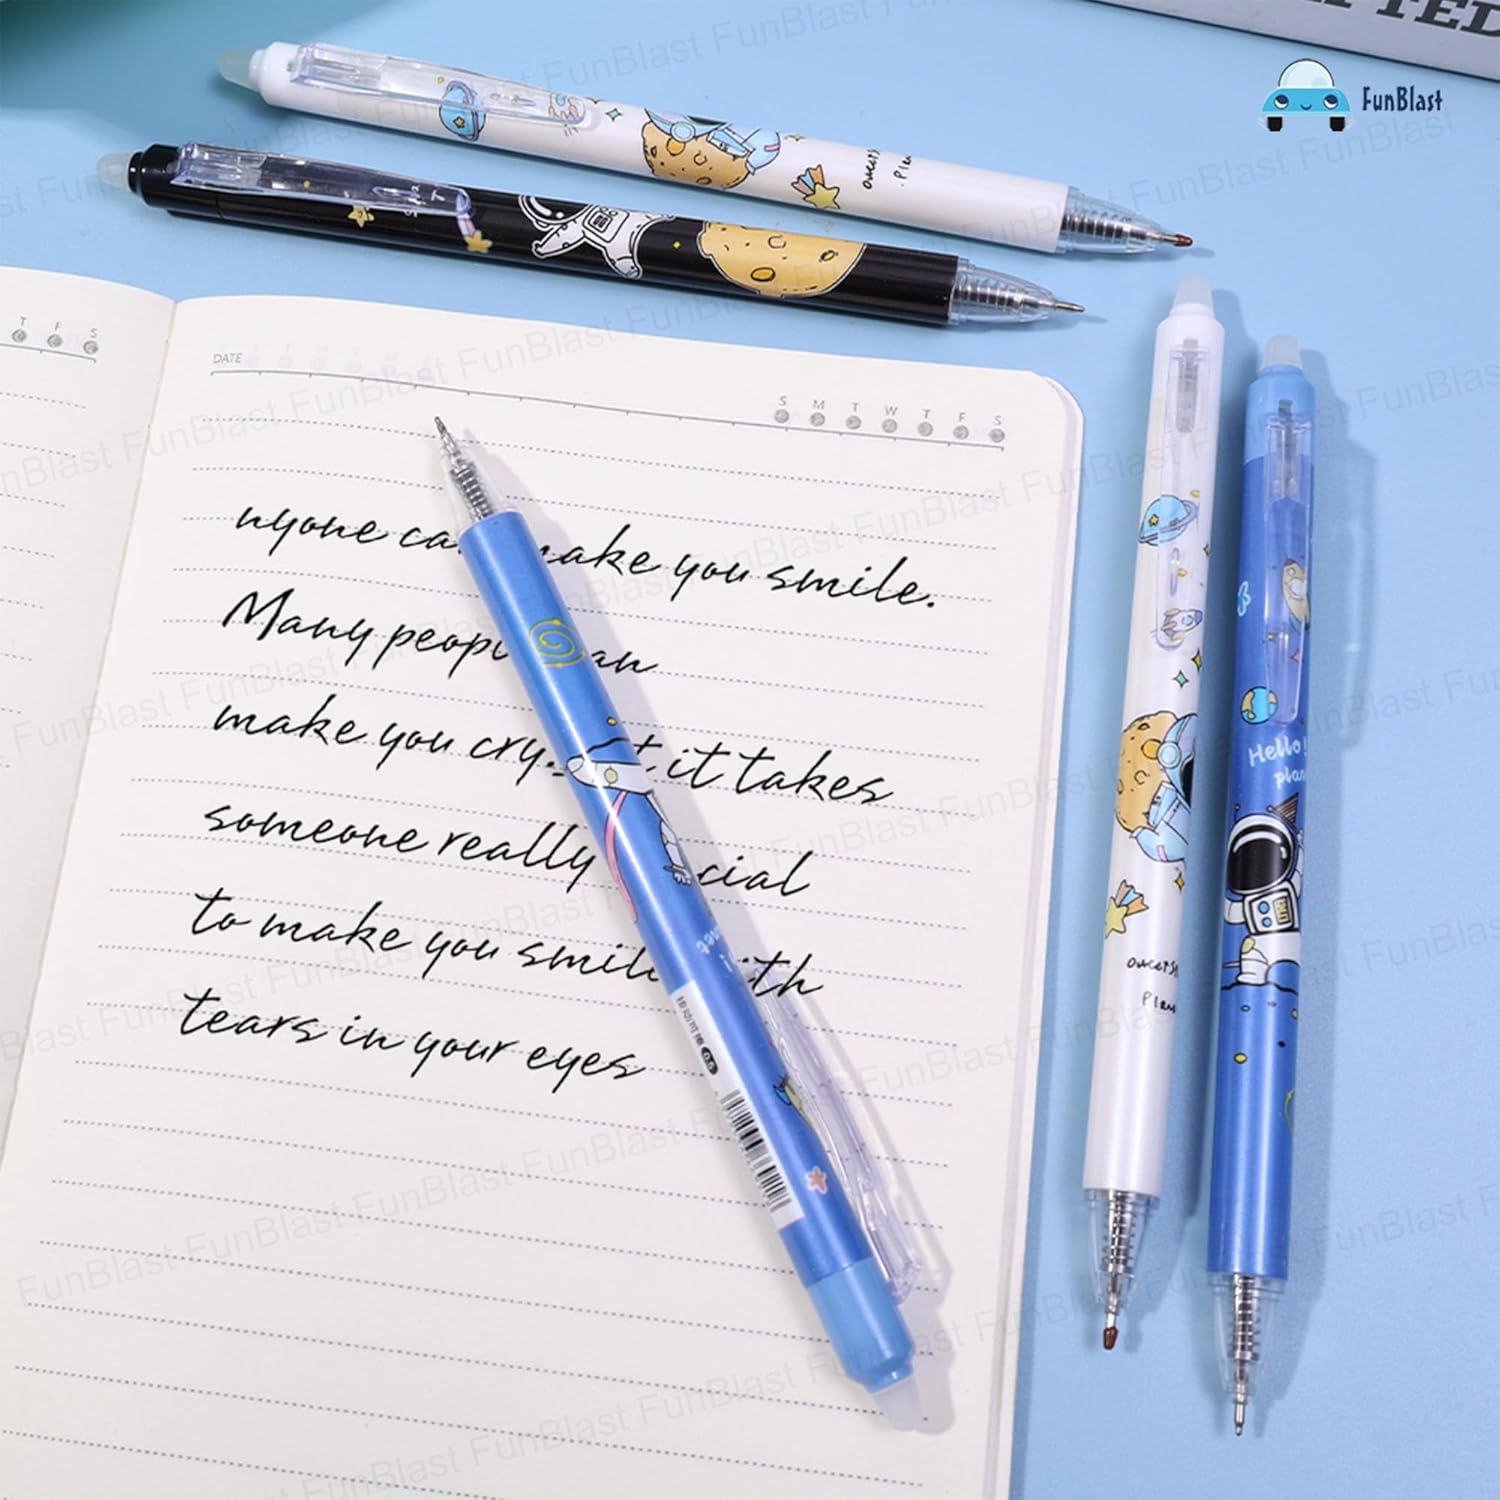 FunBlast
T F S
DATE
S M T W T F S
nyone ca make you smile.
Many peopl an
make you cry. t it takes
someone really cial
to make you smile ith
tears in your eyes
Hello
plan
Plan
0.5